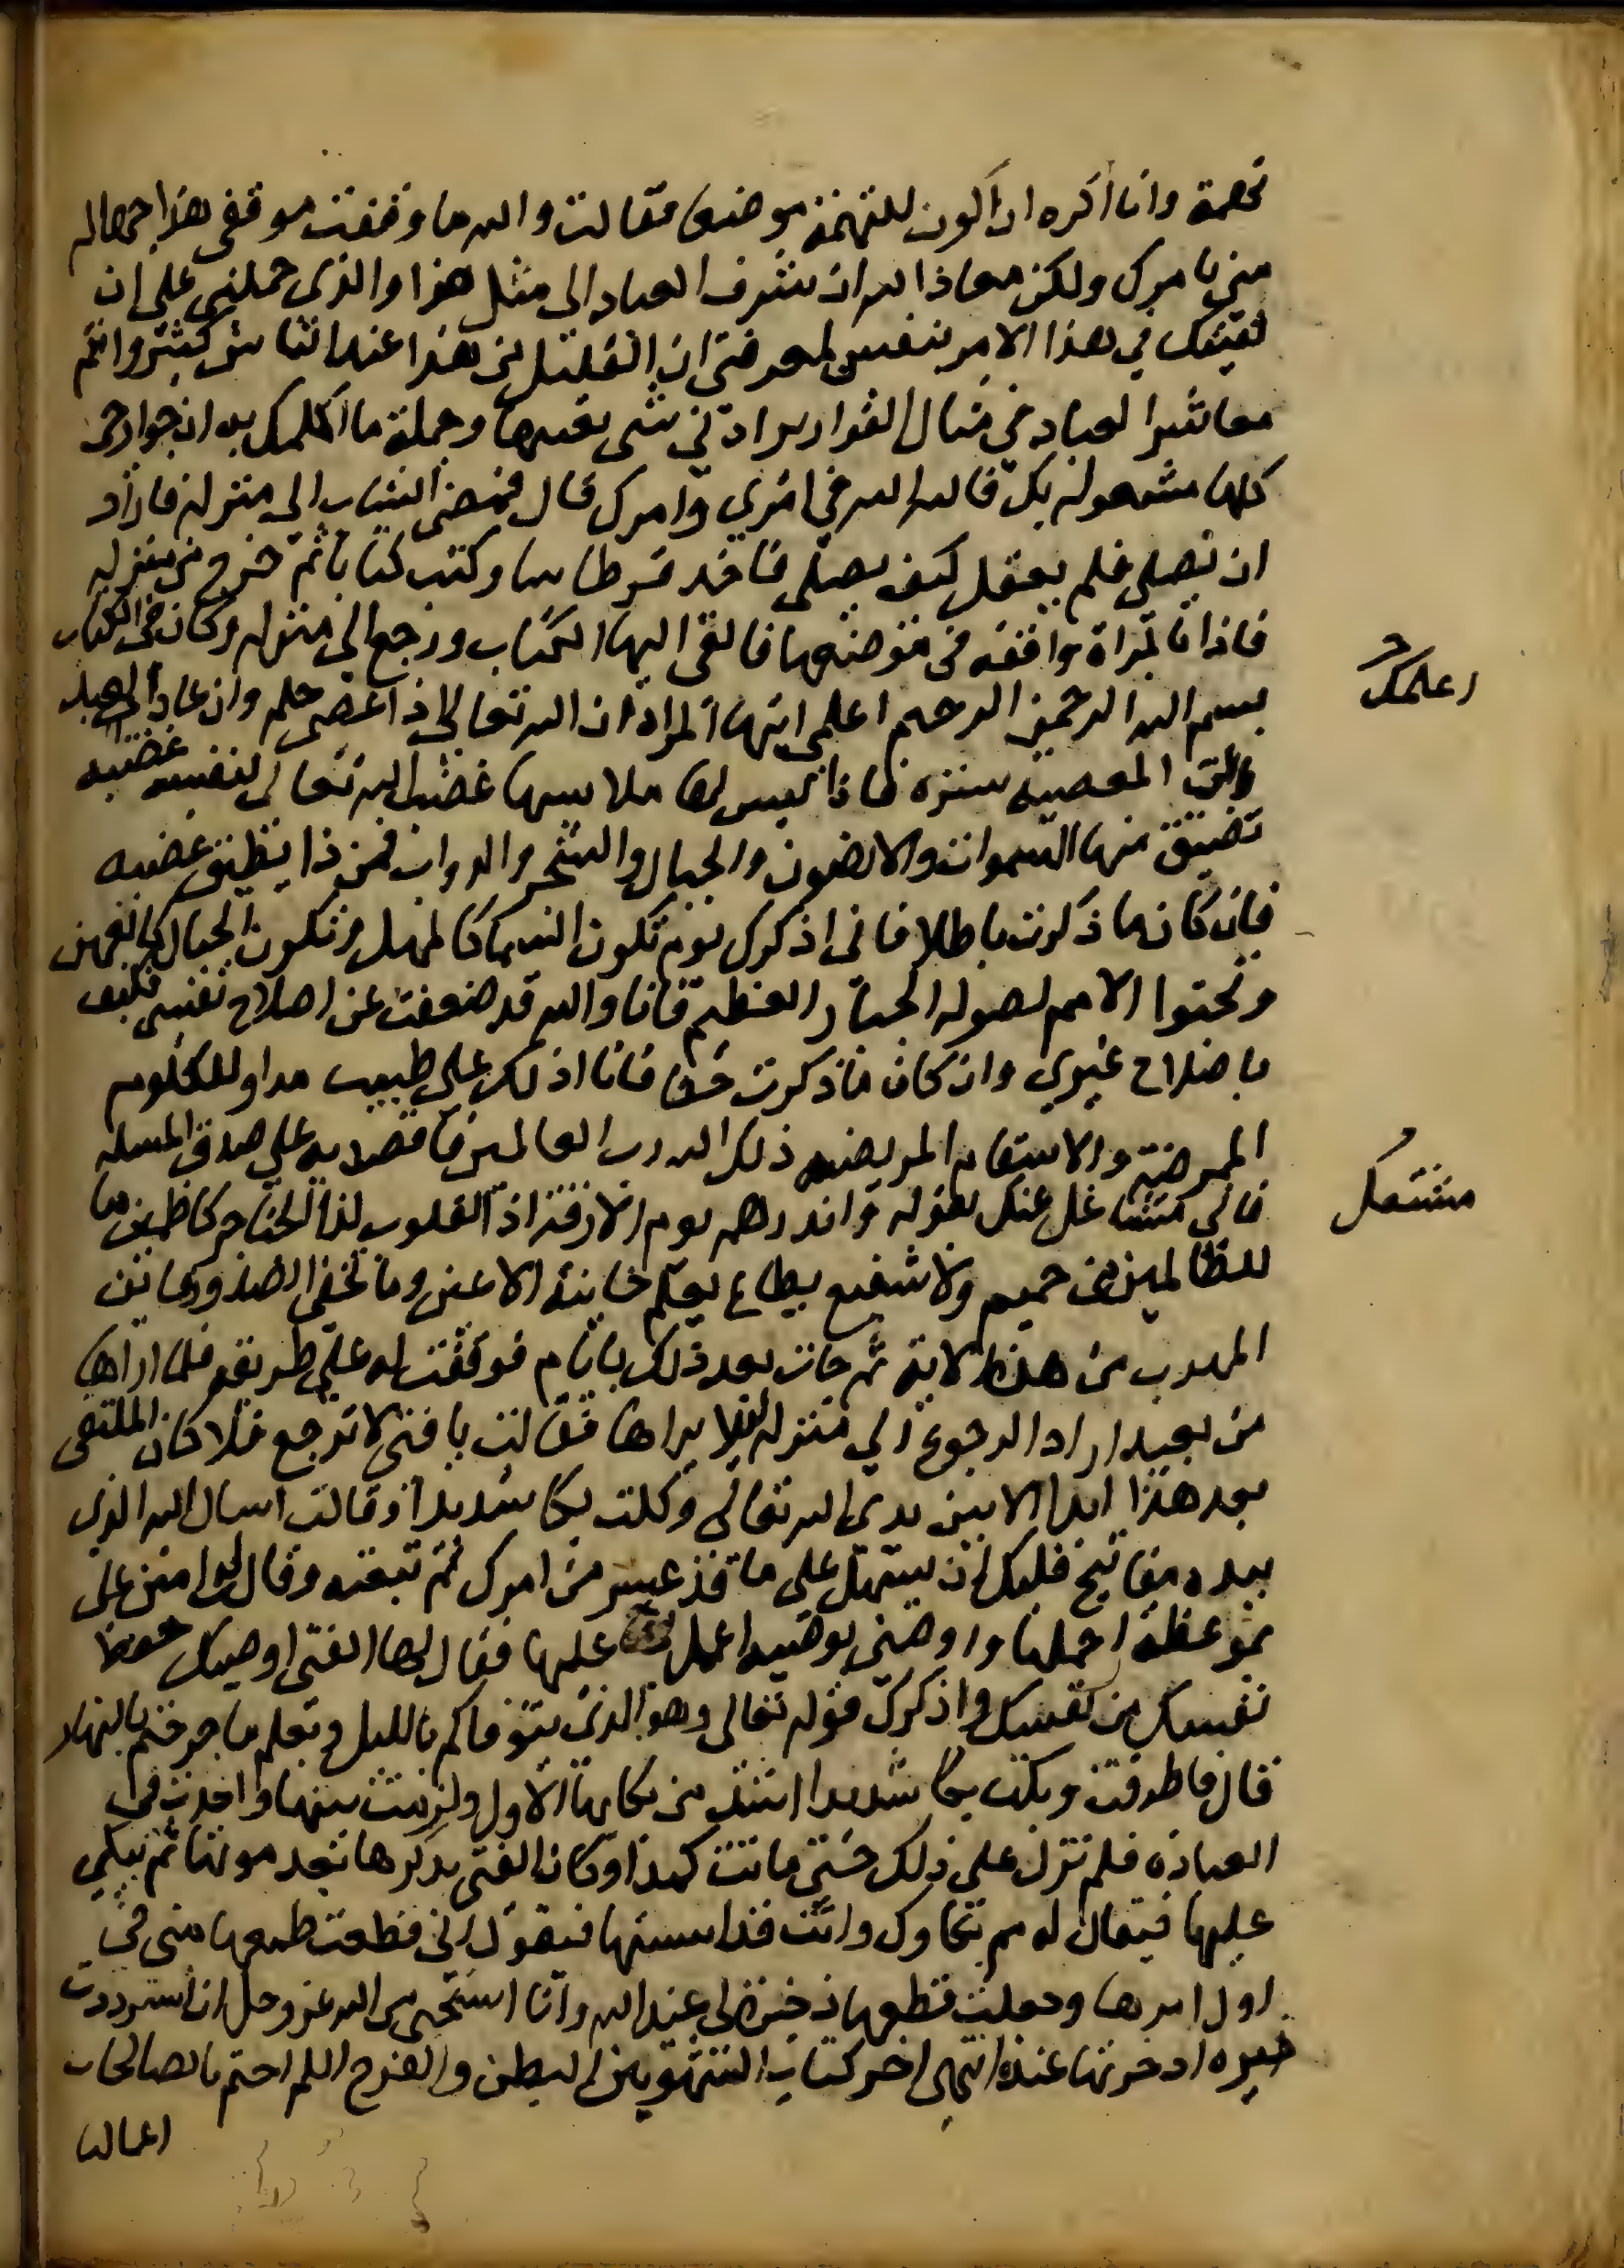 تهمة وانا اكره ان اكون للتهمة موضعا فقالت والله ما وقفت موقفي هذا جهالة
مني بامرك ولكن معاذ الله ان يتشرف العباد الى مثل هذا والذي حملني على ان
لقيتك في هذا الامر بنفسي لمعرفتي ان القليل من هذا عند الناس كثير وانتم
معاشر العباد في مثال القوارير ادنى شي يعيبها وجملة ما اكلمك به ان جوارحي
كلها مشغولة بك فالله الله في امري وامرك قال فمضى الشاب الى منزله فاراد
ان يصلي فلم يعقل كيف يصلي فاخذ قرطاسا وكتب كتابا ثم خرج من منزله
فاذا بالمراة واقفة في موضعها فالقى اليها الكتاب ورجع الى منزله وكان في الكتاب
بسم الله الرحمن الرحيم اعلمي ايتها المراة ان الله تعالى اذا عصي حلم وان عاد العبد
الى المعصية ستره فاذا لبس لها ملابسها غضب الله تعالى لنفسه غضبة
تضيق منها السموات والارضون والجبال والشجر والدواب فمن ذا يطيق غضبه
فان كان ما ذكرت باطلا فاني اذكرك يوم تكون السما كالمهل وتكون الجبال كالعهن
وتجثوا الامم لصولة الجبار العظيم فانا والله قد ضعفت عن اصلاح نفسي فكيف
باصلاح غيري وان كان ما ذكرت حقا فانا ادلك على طبيب مداو للكلوم
الممرضة والاسقام المريضة ذلك الله رب العالمين فاقصديه على صدق المسلة
فاني متشاغل عنك بقوله وانذرهم يوم الازفة اذ القلوب لدا الحناجر كاظمين ما
للظالمين من حميم ولا شفيع يطاع يعلم خاينة الاعين وما تخفي الصدور فاين
المهرب من هذه الاية ثم جات بعد ذلك بايام فوقفت له على طريقه فلما راها
من بعيد اراد الرجوع الى منزله ليلا يراها فقالت يا فتى لا ترجع فلا كان الملتقى
بعد هذا ابدا الا بين يدي الله تعالى وبكت بكا شديدا وقالت اسال الله الذي
بيده مفاتيح قلبك ان يسهل على ما قد عسر من امرك ثم تبعته وقالت امنن علي
بموعظة احملها واوصني بوصية اعمل عليها فقال لها الفتى اوصيك بحفظ
نفسك من نفسك واذكرك قوله تعالى وهو الذي يتوفاكم بالليل ويعلم ما جرحتم بالنهار
قال فاطرقت وبكت بكا شديدا اشد من بكايها الاول ولزمت بيتها واخذت في
العبادة فلم تزل على ذلك حتى ماتت كمدا وكان الفتى يذكرها بعد موتها ثم يبكي
عليها فيقال له مم بكاوك وانت قد ايستها فيقول اني قطعت طمعها مني في
اول امرها وجعلت قطعها ذخيرة لي عند الله وانا استحي من الله عز وجل ان استرددت
ذخيرة ادخرتها عنده انتهى اخر كتاب الشهوتين البطن والفرج اللهم اختم بالصالحات
اعمالنا
اعلمك
مشتغل